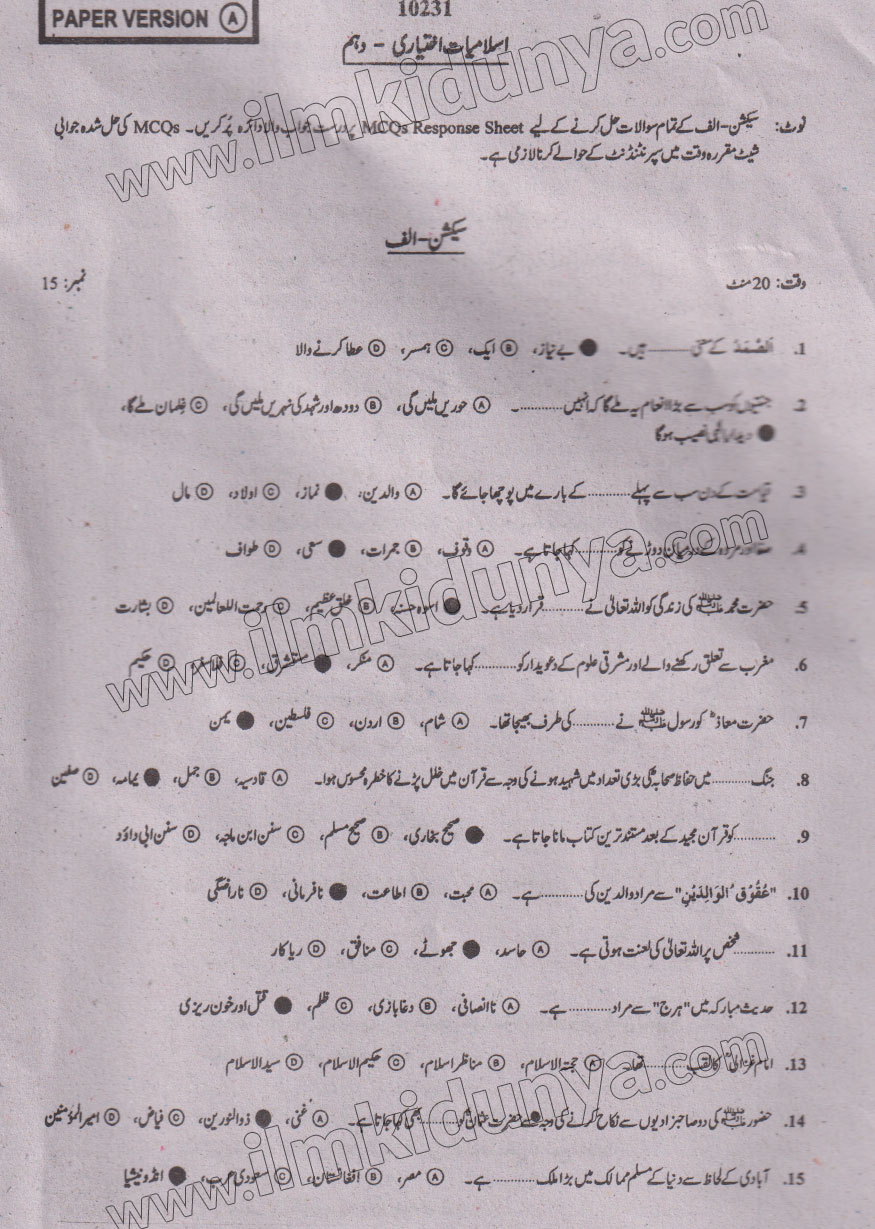 PAPER VERSION Ⓐ
10231
اسلامیات اختیاری - دہم
نوٹ: سیکشن-الف کے تمام سوالات حل کرنے کے لیے MCQs Response Sheet پر درست جواب والا دائرہ پُر کریں۔ MCQs کی حل شدہ جوابی
شیٹ مقررہ وقت میں سپرنٹنڈنٹ کے حوالے کرنا لازمی ہے۔
سیکشن-الف
وقت: 20 منٹ نمبر: 15
1. اَلصَّمَدُ کے معنی ............ ہیں۔ ● بے نیاز، Ⓑ ایک، Ⓒ ہمسر، Ⓓ عطا کرنے والا
2. جنتیوں کو سب سے بڑا انعام یہ ملے گا کہ انہیں ............۔ Ⓐ حوریں ملیں گی، Ⓑ دودھ اور شہد کی نہریں ملیں گی، Ⓒ غِلمان ملے گا،
● دیدارِ الٰہی نصیب ہوگا
3. قیامت کے دن سب سے پہلے ............ کے بارے میں پوچھا جائے گا۔ Ⓐ والدین، ● نماز، Ⓒ اولاد، Ⓓ مال
4. صفا اور مروہ کے درمیان دوڑنے کو ............ کہا جاتا ہے۔ Ⓐ وقوف، Ⓑ جمرات، ● سعی، Ⓓ طواف
5. حضرت محمد ﷺ کی زندگی کو اللہ تعالیٰ نے ............ قرار دیا ہے۔ ● اسوہ حسنہ، Ⓑ خلق عظیم، Ⓒ رحمت اللعالمین، Ⓓ بشارت
6. مغرب سے تعلق رکھنے والے اور مشرقی علوم کے دعویدار کو ............ کہا جاتا ہے۔ Ⓐ منکر، ● مستشرق، Ⓒ فلاسفر، Ⓓ حکیم
7. حضرت معاذؓ کو رسول ﷺ نے ............ کی طرف بھیجا تھا۔ Ⓐ شام، Ⓑ اردن، Ⓒ فلسطین، ● یمن
8. جنگ ............ میں حفاظ صحابہؓ کی بڑی تعداد میں شہید ہونے کی وجہ سے قرآن میں خلل پڑنے کا خطرہ محسوس ہوا۔ Ⓐ قادسیہ، Ⓑ جمل، ● یمامہ، Ⓓ صفین
9. ............ کو قرآن مجید کے بعد مستند ترین کتاب مانا جاتا ہے۔ ● صحیح بخاری، Ⓑ صحیح مسلم، Ⓒ سنن ابن ماجہ، Ⓓ سنن ابی داؤد
10. "عُقُوْقُ الْوَالِدَیْنِ" سے مراد والدین کی ............ ہے۔ Ⓐ محبت، Ⓑ اطاعت، ● نافرمانی، Ⓓ ناراضگی
11. ............ شخص پر اللہ تعالیٰ کی لعنت ہوتی ہے۔ Ⓐ حاسد، ● جھوٹے، Ⓒ منافق، Ⓓ ریاکار
12. حدیث مبارکہ میں "ہرج" سے مراد ............ ہے۔ Ⓐ ناانصافی، Ⓑ دغابازی، Ⓒ ظلم، ● قتل اور خون ریزی
13. امام غزالیؒ کا لقب ............ تھا۔ Ⓐ حجتہ الاسلام، Ⓑ مناظر اسلام، Ⓒ حکیم الاسلام، Ⓓ سید الاسلام
14. حضور ﷺ کی دو صاحبزادیوں سے نکاح کرنے کی وجہ سے حضرت عثمانؓ کو ............ بھی کہا جاتا ہے۔ Ⓐ غنی، ● ذوالنورین، Ⓒ فیاض، Ⓓ امیر المؤمنین
15. آبادی کے لحاظ سے دنیا کے مسلم ممالک میں بڑا ملک ............ ہے۔ Ⓐ مصر، Ⓑ افغانستان، Ⓒ سعودی عرب، ● انڈونیشیا
www.ilmkidunya.com
www.ilmkidunya.com
www.ilmkidunya.com